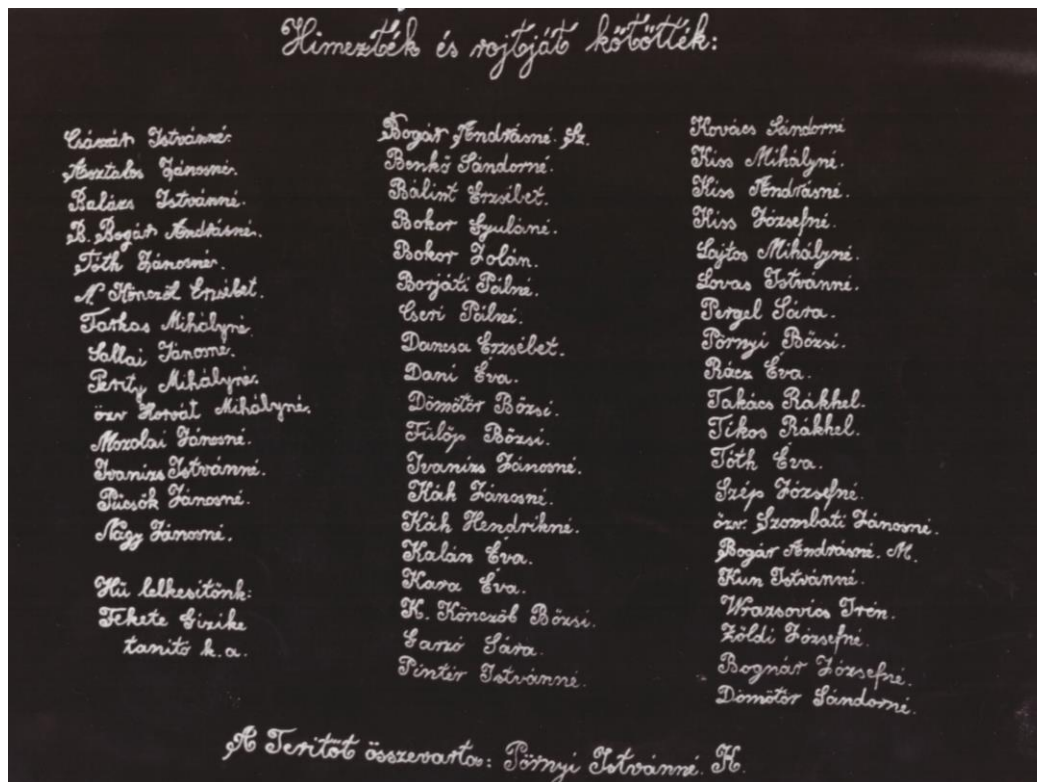 Himezték és rojtját kötötték:
Császár Istvánné.
Asztalos Jánosné.
Balázs Istvánné.
B. Bogár Andrásné.
Tóth Jánosné.
N. Könczöl Erzsébet.
Farkas Mihályné.
Sallai Jánosné.
Penty Mihályné.
özv Horvát Mihályné.
Mozolai Jánosné.
Ivanizs Istvánné.
Pücsök Jánosné.
Nagy Jánosné.
Hü lelkesitönk:
Fekete Gizike
tanitó k.a.
Bogár Andrásné. Sz.
Benkő Sándorné.
Bálint Erzsébet.
Bokor Gyuláné.
Bokor Zolán.
Borjáti Pálné.
Cseri Pálné.
Dancsa Erzsébet.
Dani Éva.
Dömötör Bözsi.
Fülöp Bözsi.
Ivanizs Jánosné.
Káh Jánosné.
Káh Hendrikné.
Kalán Éva.
Kara Éva.
K. Könczöb Bözsi.
Garzó Sára.
Pintér Istvánné.
Kovács Sándorné
Kiss Mihályné.
Kiss Andrásné.
Kiss Józsefné.
Lajtos Mihályné.
Lovas Istvánné.
Pergel Sára.
Pörnyi Bözsi.
Rácz Éva.
Takács Rákhel.
Tikos Rákhel.
Tóth Éva.
Szép Józsefné.
özv. Szombati Jánosné.
Bogár Andrásné. M.
Kun Istvánné.
Wrazsovics Irén.
Zöldi Józsefné.
Bognár Józsefné.
Dömötör Sándorné.
A Teritöt összevarta: Pörnyi Istvánné. H.